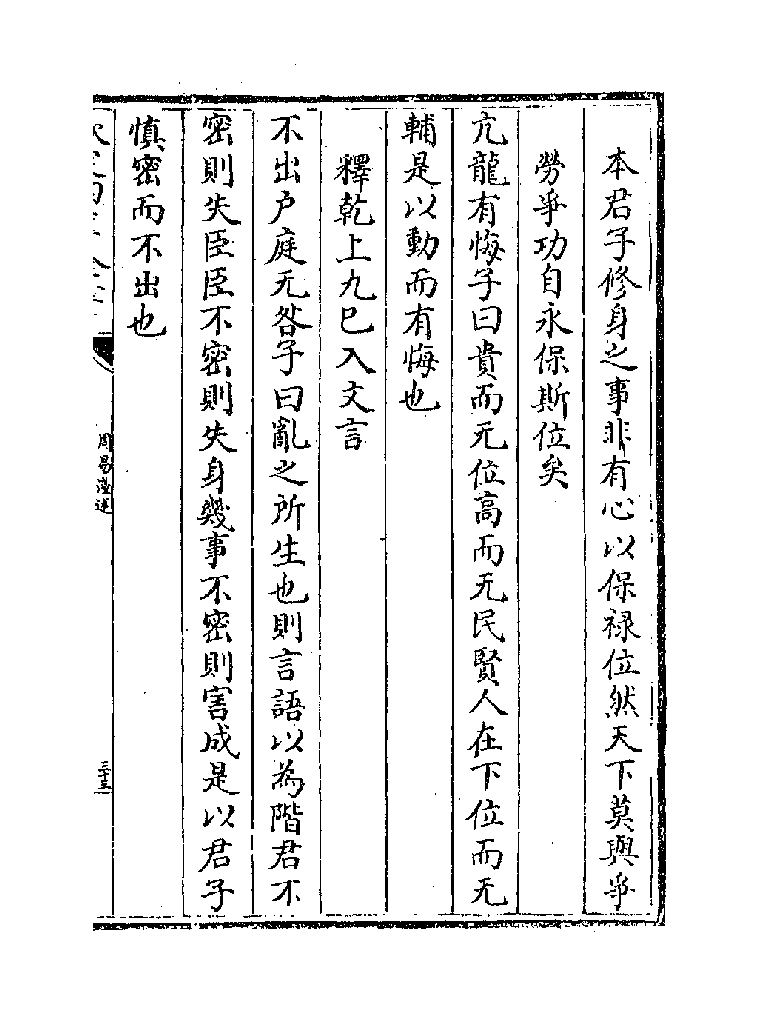 本君子修身之事非有心以保祿位然天下莫與爭
勞爭功自永保斯位矣
亢龍有悔子曰貴而无位高而无民賢人在下位而无
輔是以動而有悔也
釋乾上九已入文言
不出户庭无咎子曰亂之所生也則言語以為階君不
密則失臣臣不密則失身幾事不密則害成是以君子
慎密而不出也
周易淺述
三十五